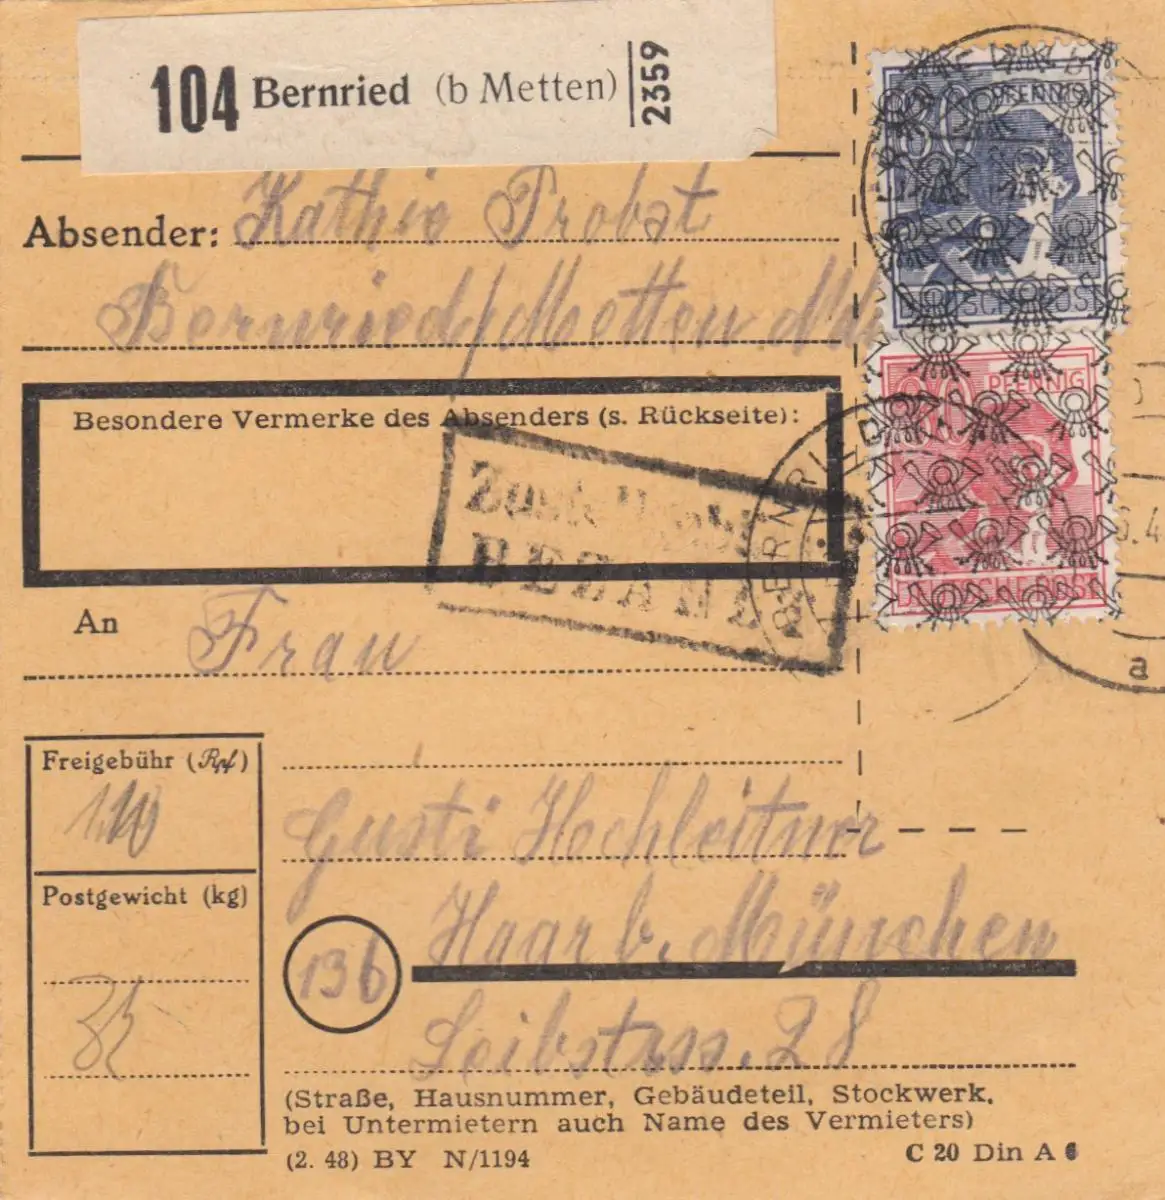 104 Bernried (b Metten) 2359
Absender: Kathie Probst
Bernried/Metten
Besondere Vermerke des Absenders (s. Rückseite):
BEZAHLT
BERNRIED
PFENNIG
DEUTSCHE POST
80 PFENNIG
DEUTSCHE POST
a
An Frau
Freigebühr (Rpf)
110
Gusti Hochleitner
Postgewicht (kg)
Haar b. München
13b
Leibstrss. 28
(Straße, Hausnummer, Gebäudeteil, Stockwerk,
bei Untermietern auch Name des Vermieters)
(2. 48) BY N/1194
C 20 Din A 6